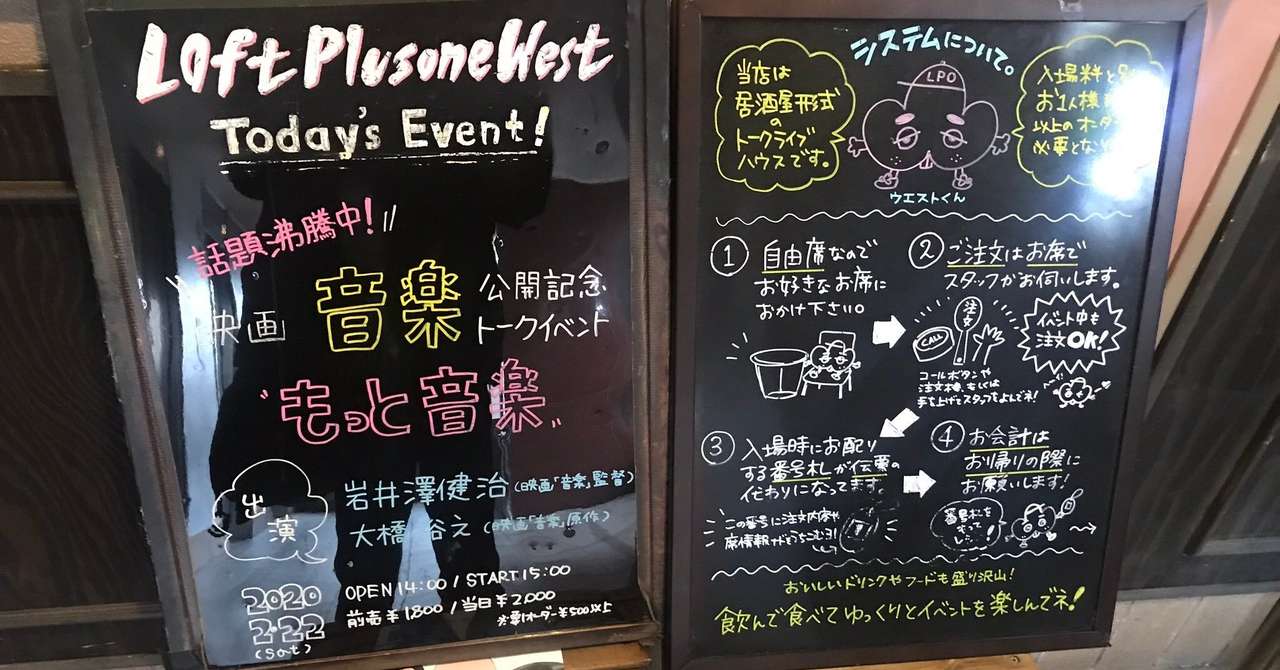 Loft PlusoneWest
Today's Event!
話題沸騰中!
映画
音楽
公開記念
トークイベント
"もっと音楽"
出演
岩井澤健治(映画「音楽」監督)
大橋裕之(映画「音楽」原作)
2020
2.22
(Sat)
OPEN 14:00 / START 15:00
前売¥1,800 / 当日¥2,000
※要1オーダー¥500以上
システムについて。
当店は
居酒屋形式
の
トークライブ
ハウスです。
LPO
ウエストくん
入場料と
お1人様
以上のオーダー
必要とな
① 自由席なので
お好きなお席に
おかけ下さい。
② ご注文はお席で
スタッフがお伺いします。
注文
CALL
イベント中も
注文OK!
コールボタンや
注文棒、もしくは
手を上げてスタッフをよんでネ!
③ 入場時にお配り
する番号札が伝票の
代わりになってます。
この番号に注文内容や
席情報が
④ お会計は
お帰りの際に
お願いします!
番号札を
もって
おいしいドリンクやフードも盛り沢山!
飲んで食べてゆっくりとイベントを楽しんでネ!